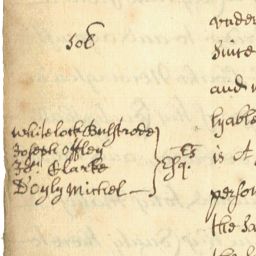 308
Whitelock Bulstrode
Joseph Offley
Jon. Clarke
D'oyly Michel
Esqrs.
under
since
and
lyable
is at
person
the